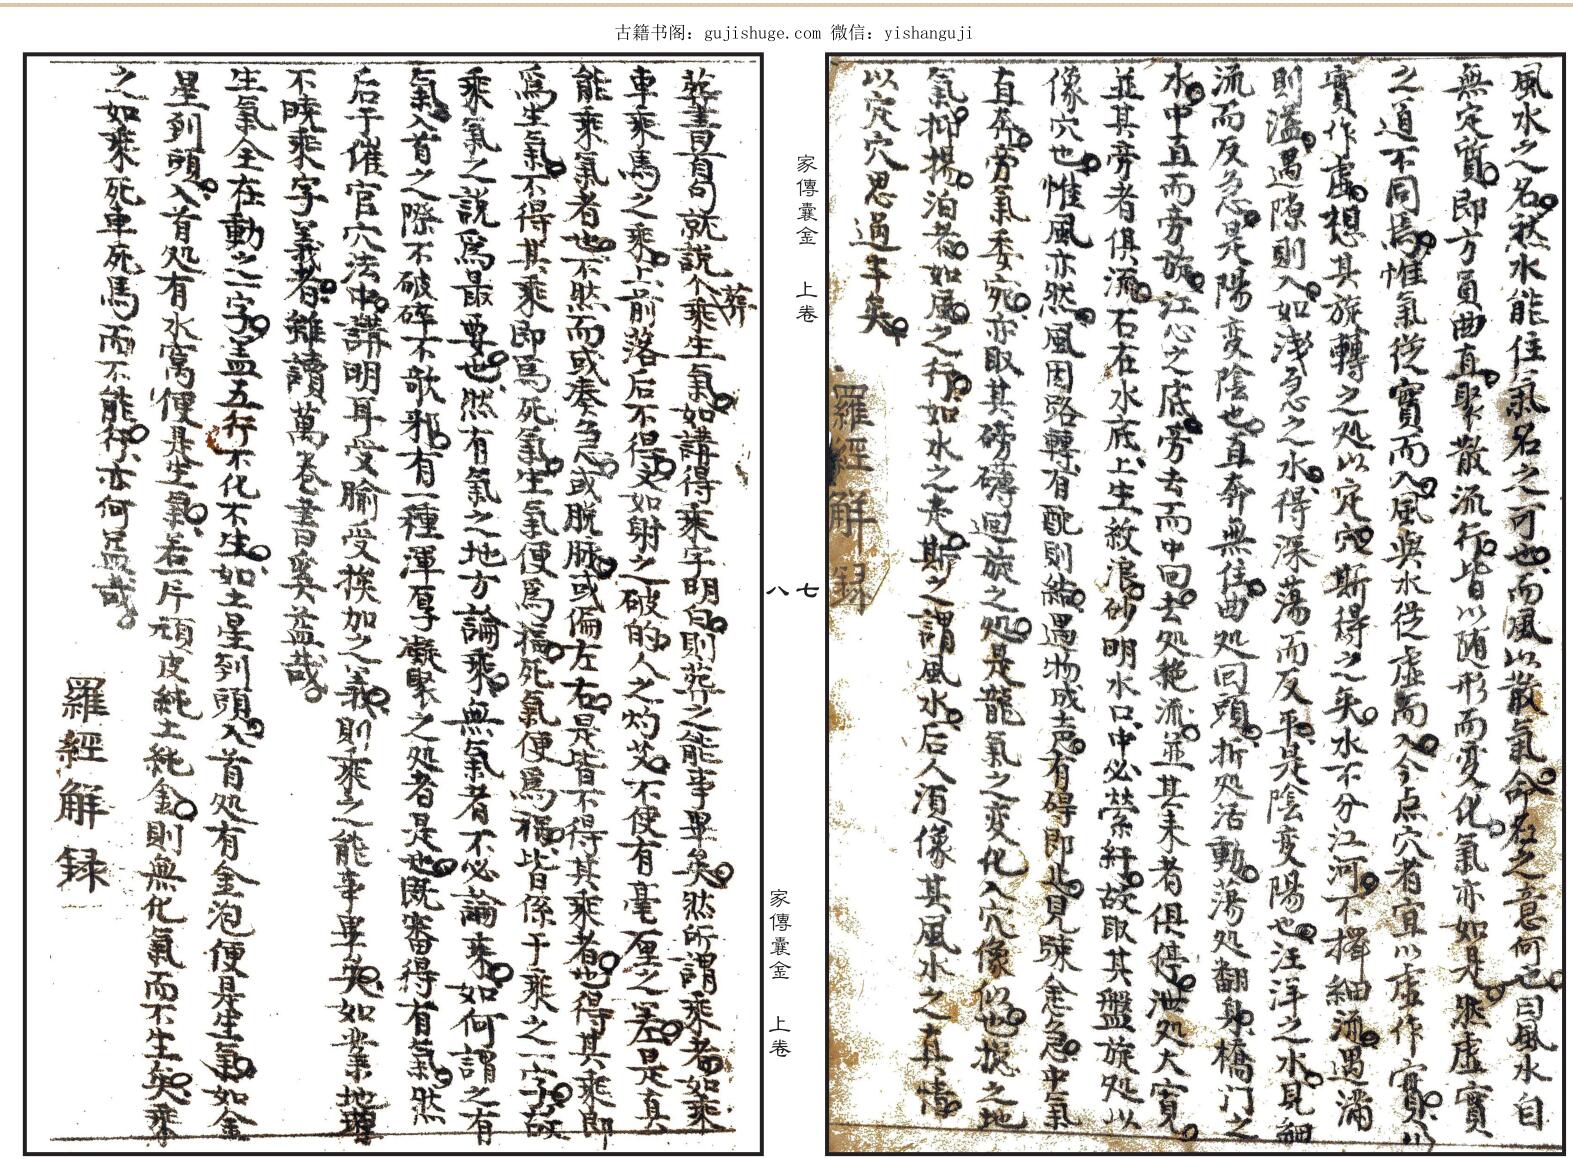 古籍书阁：gujishuge.com 微信：yishanguji
風水之名然水能住氣名之可也而風以散氣命名之意何也曰風水自
無定質即方員曲直聚散流行皆以随形而变化氣亦如是然虚實
之道不同焉惟氣從實而入風與水從虚而入今点穴者宜以虚作實以
實作虚想其旋轉之处以定穴斯得之矣水不分江河不擇細流遇滿
則溢遇隙則入如浅急之水得深蕩而反平是陰变陽也汪洋之水見細
流而反急是陽变陰也直奔無住曲处回頭折处活動蕩处翻身橋门之
水中直而旁旋江心之底旁去而中回去处艳流並其来者俱停泄处大寬
並其旁者俱流石在水底上生紋浪砂明水口中必縈紆故取其盤旋处以
像穴也惟風亦然風因路轉有配則結遇物成声有碍即止見疎愈急中氣
直奔旁氣委宛亦取其磅礡迴旋之处是龍氣之变化入穴像似也拢之地
氣抑揚泊若如風之行如水之走斯之謂風水后人須像其風水之真情
以定穴思過半矣
羅經解録
家傳囊金 上卷
八七
家傳囊金 上卷
葬書首句就說个乘生氣如講得乘字明白則葬之能事畢矣然所謂乘者如乘
葬
車乘馬之乘上前落后不得又如射之破的人之灼艾不便有毫厘之差是真
能乘氣者也不然而或奏急或脱脉或偏左右是皆不得其乘者也得其乘即
爲生氣不得其乘即爲死氣生氣便爲福死氣便爲禍皆係于乘之一字故
乘氣之說爲最要也然有氣之地方論乘無氣者不必論乘如何謂之有
氣入首之際不破碎不欹邪有一種渾厚凝聚之处者是也既審得有氣然
后于催官穴法中講明耳受腧受挨加之義則乘之能事畢矣如業地理
不曉乘字義者雖讀萬卷書奚益哉
生氣全在動之一字盖五行不化不生如土星到頭入首处有金泡便是生氣如金
星到頭入首处有水窩便是生氣若一片頑皮純土純金則無化氣而不生矣乘
之如乘死車死馬而不能行亦何益哉
羅經解録